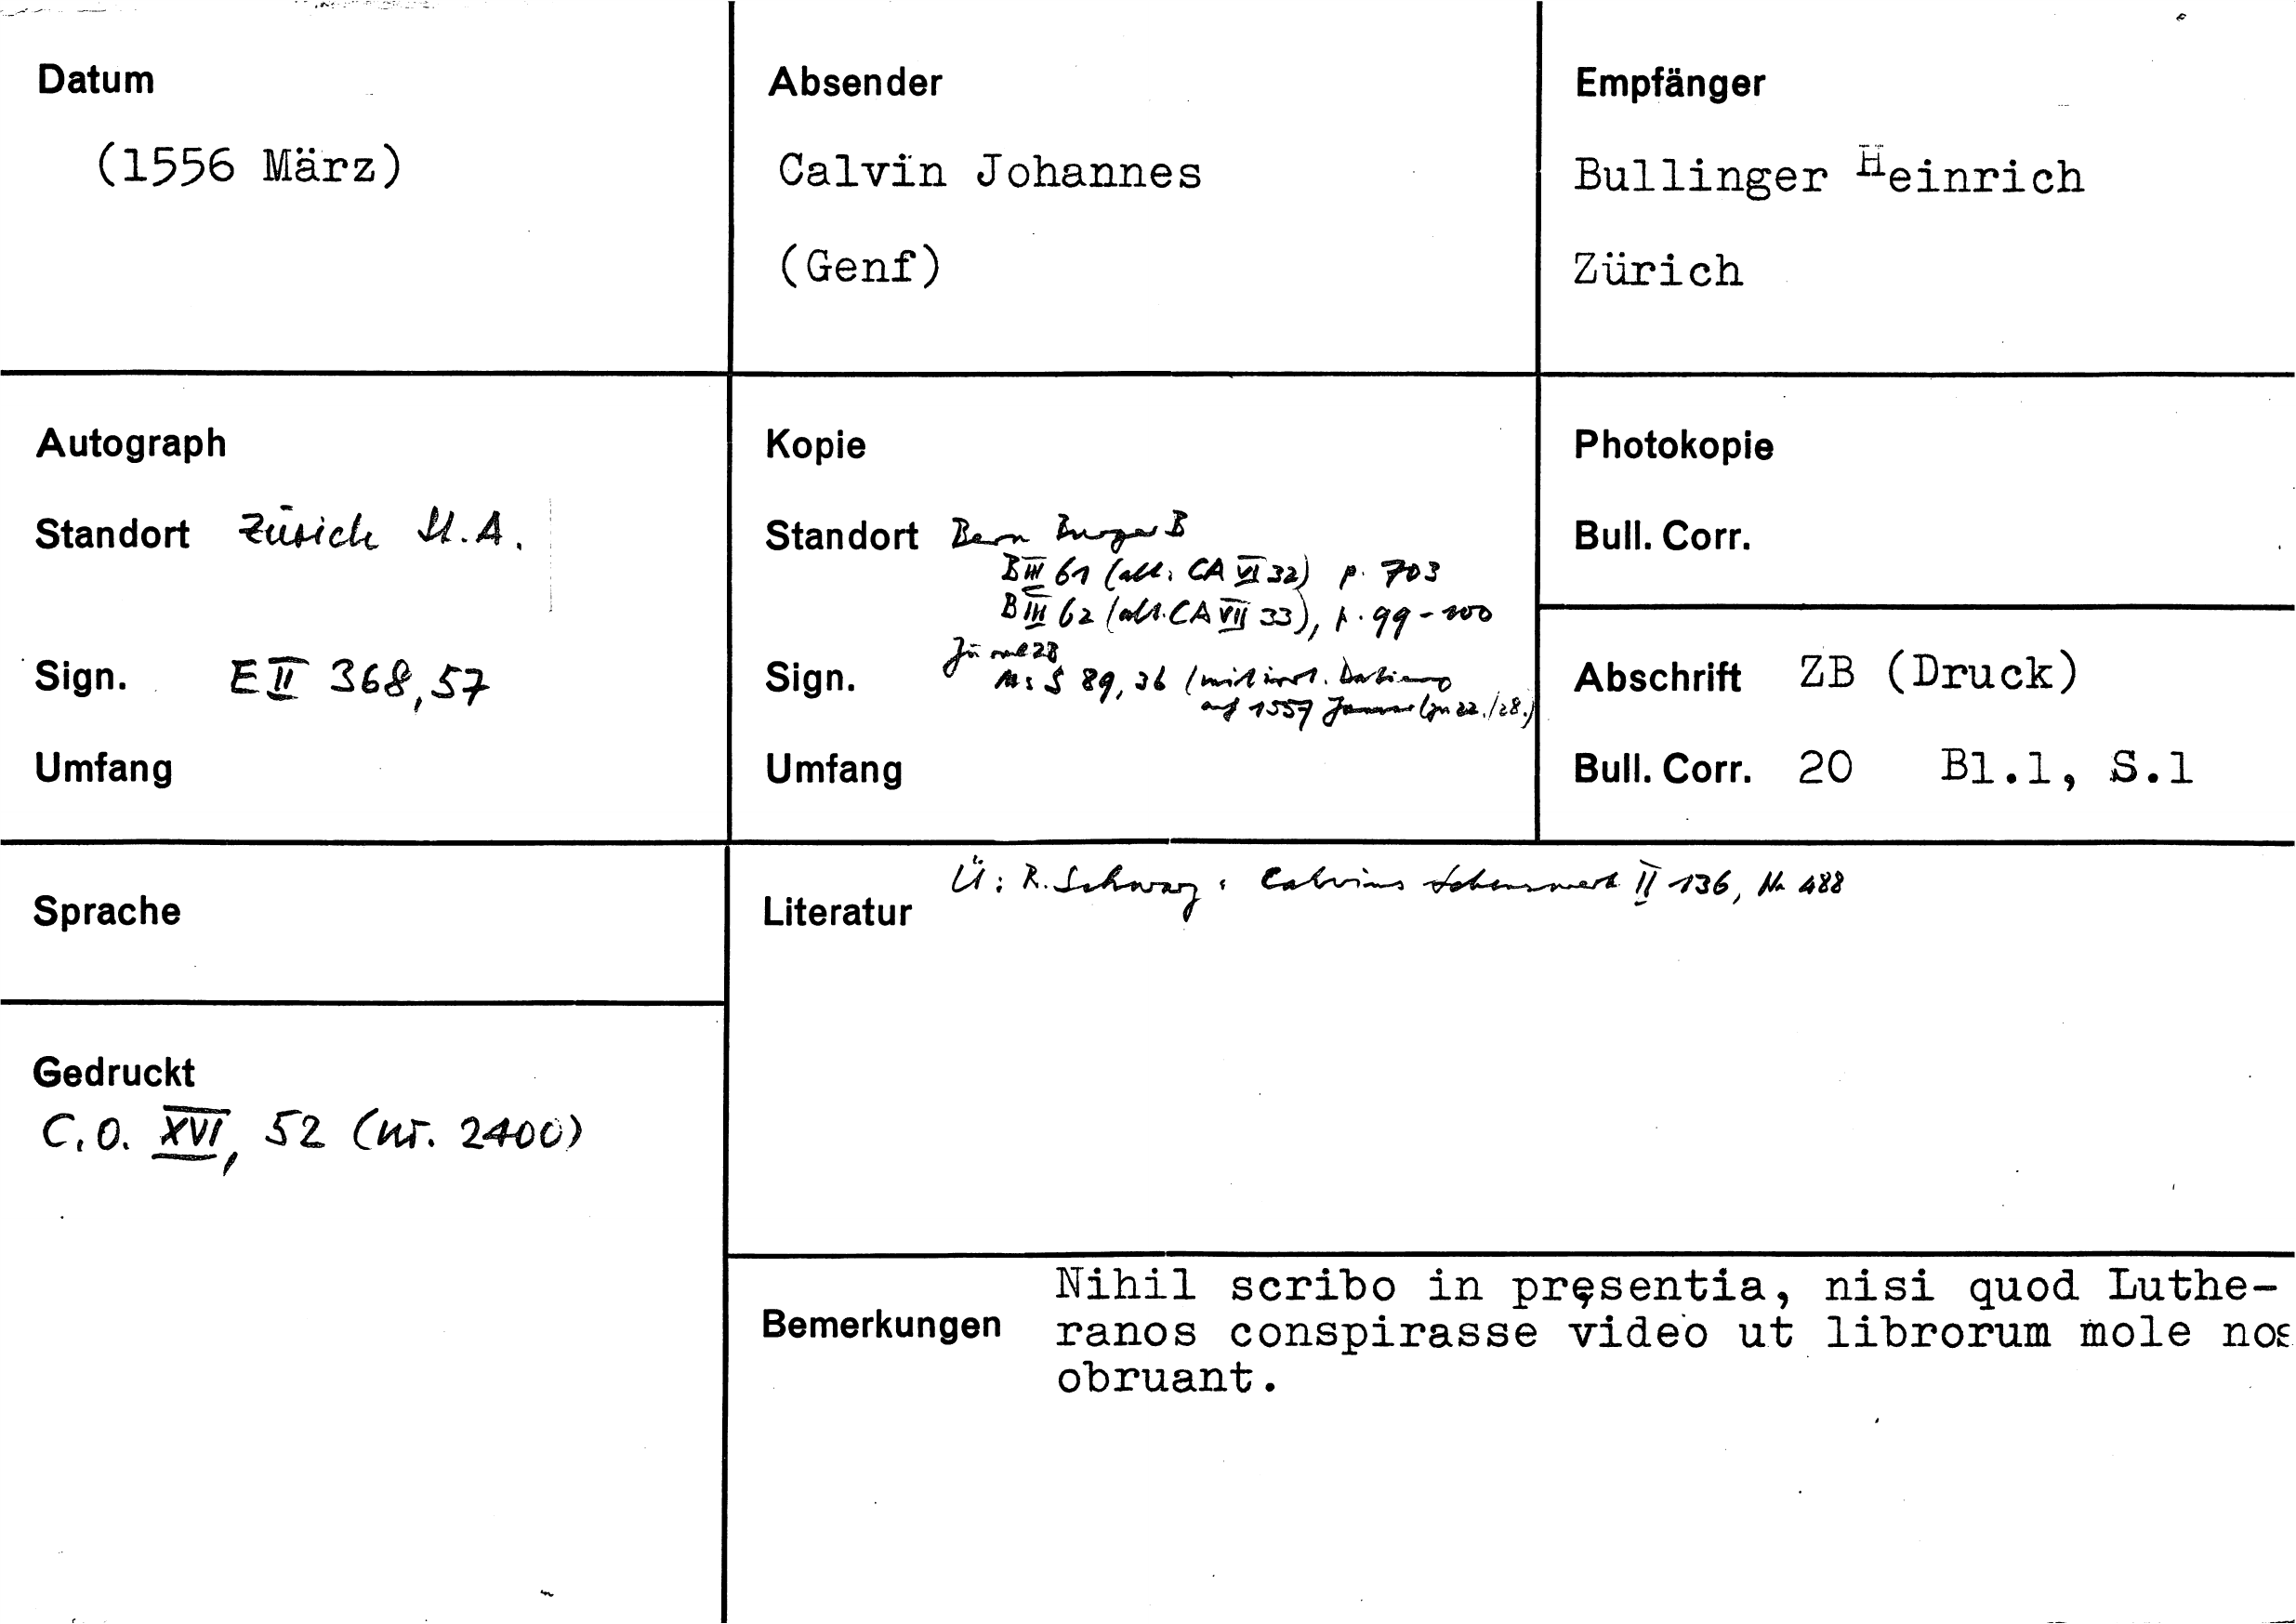 Datum
(1556 März)
Absender
Calvin Johannes
(Genf)
Empfänger
Bullinger Heinrich
Zürich
Autograph
Standort Zürich St.A.
Sign. E II 368,57
Umfang
Kopie
Standort Bern BurgerB
B III 61 (alt: CA VI 32) p. 703
B III 62 (alt. CA VII 33), p. 99-100
Sign. Ms S 89, 36 (mit irrt. Datierung
auf 1557 Januar 22./28.)
Umfang
Photokopie
Bull. Corr.
Abschrift ZB (Druck)
Bull. Corr. 20 Bl.1, S.1
Sprache
Literatur Ü: R. Schwarz: Calvins Lebenswerk II 136, Nr 488
Gedruckt
C.O. XVI, 52 (nr. 2400)
Bemerkungen
Nihil scribo in pręsentia, nisi quod Luthe-
ranos conspirasse video ut librorum mole nos
obruant.